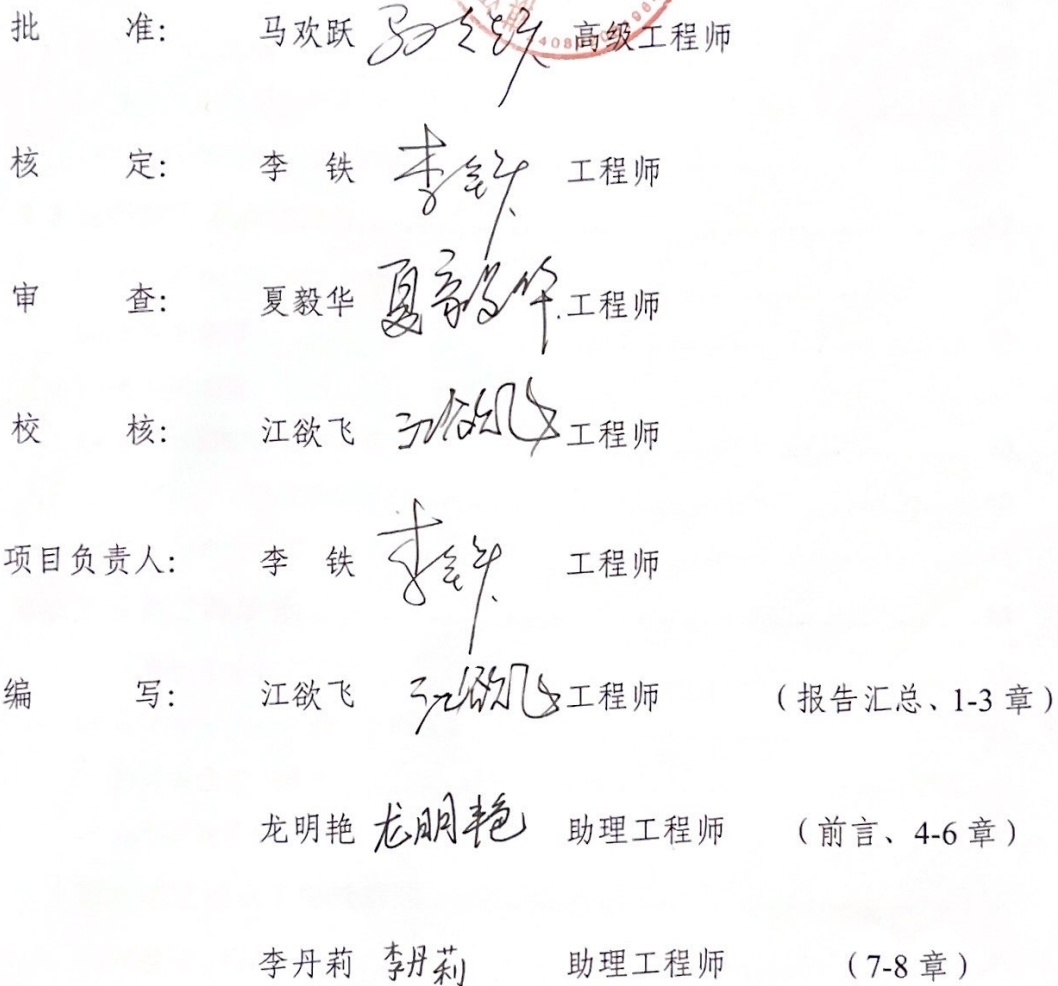 批 准: 马欢跃 高级工程师
核 定: 李 铁 李铁 工程师
审 查: 夏毅华 夏毅华 工程师
校 核: 江欲飞 江欲飞 工程师
项目负责人: 李 铁 李铁 工程师
编 写: 江欲飞 江欲飞 工程师 (报告汇总、1-3 章)
龙明艳 龙明艳 助理工程师 (前言、4-6 章)
李丹莉 李丹莉 助理工程师 (7-8 章)